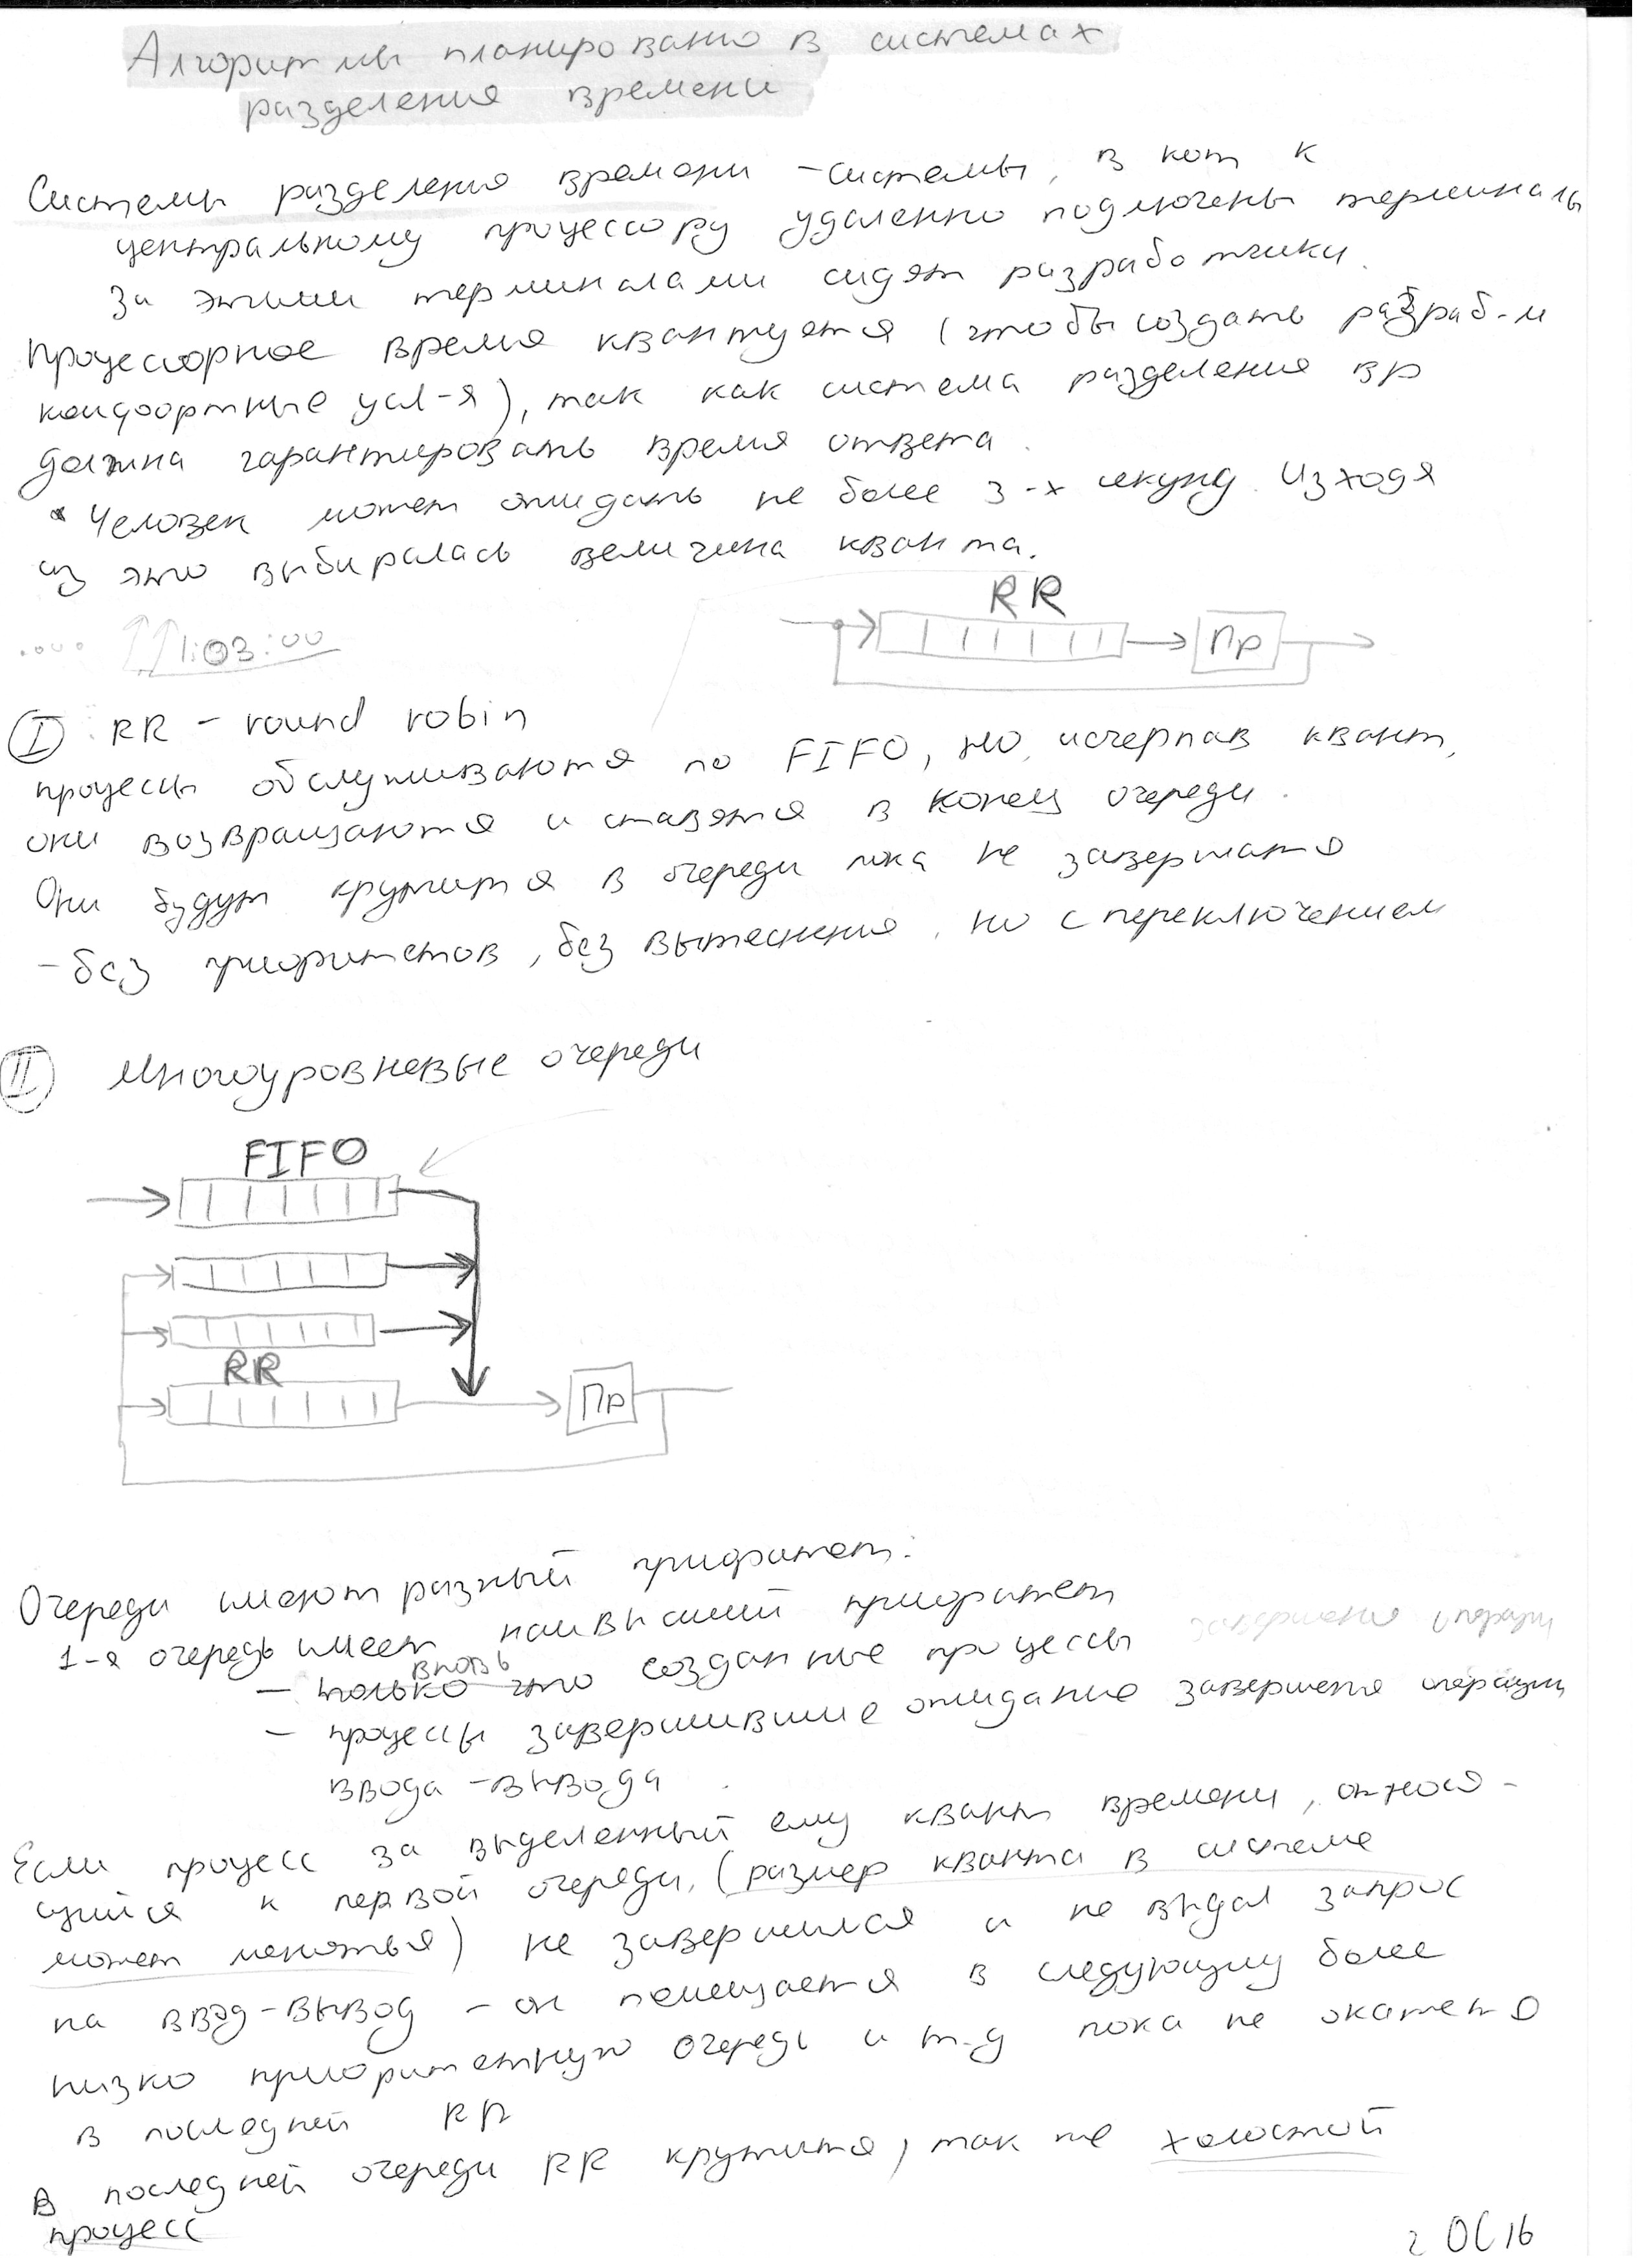 Алгоритмы планирования в системах
разделения времени
Системы разделения времени - системы, в кот к
центральному процессору удаленно подключены терминалы
За этими терминалами сидят разработчики.
Процессорное время квантуется (чтобы создать разраб-м
комфортные усл-я), так как система разделения вр
должна гарантировать время ответа.
Человек может ожидать не более 3-х секунд. Исходя
из этого выбиралась величина кванта.
RR
1:03:00
Пр
I RR - round robin
процессы обслуживаются по FIFO, но, исчерпав квант,
они возвращаются и ставятся в конец очереди.
Они будут крутится в очереди пока не завершатся
- без приоритетов, без вытеснения, но с переключением
II Многоуровневые очереди
FIFO
RR
Пр
Очереди имеют разный приоритет:
1-я очередь имеет наивысший приоритет
завершения операции
вновь
- только что созданные процессы
- процессы завершившие ожидание завершения операции
ввода-вывода
Если процесс за выделенный ему квант времени, относя-
щийся к первой очереди, (размер кванта в системе
может меняться) не завершился и не выдал запрос
на ввод-вывод - он помещается в следующую более
низко приоритетную очередь и т-д пока не окажется
в последней RR
В последней очереди RR крутится, так же холостой
процесс
ОС 16